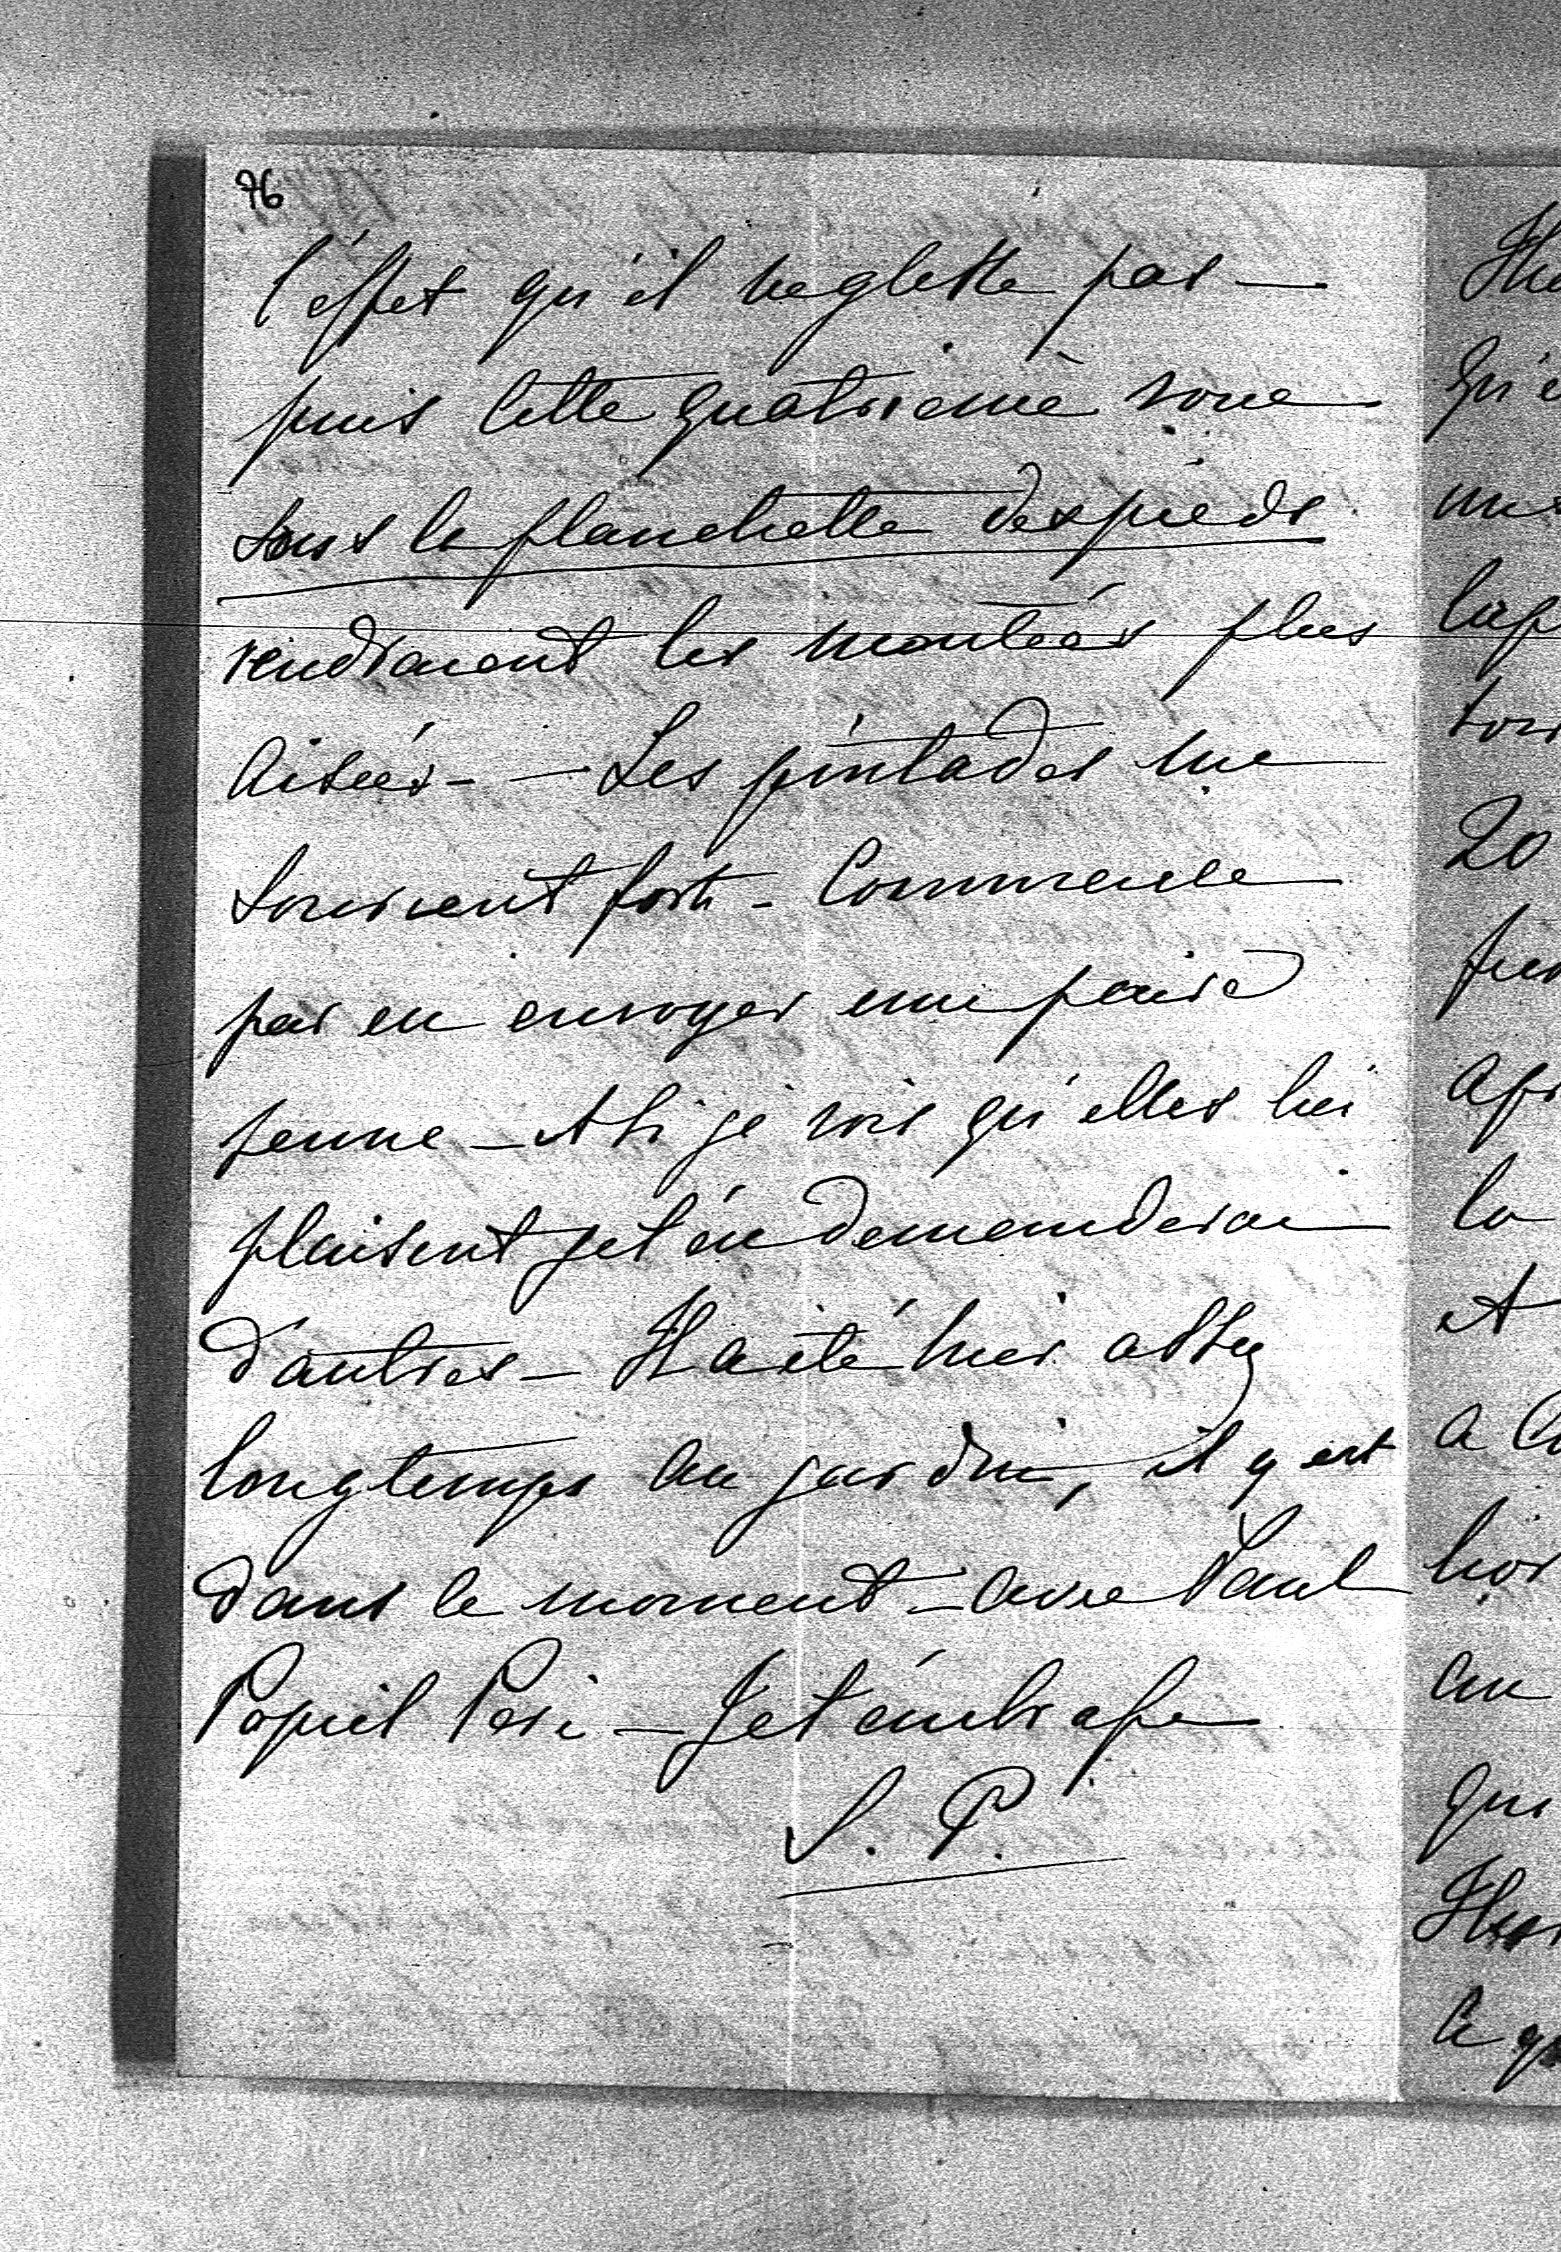 76
l'effet qu'il neglette pas —
puis cette quatrieme roue
sous la planchette des pieds
rendraient les montées plus
aisées - — Les pintades me
sourient fort - Commence
par en envoyer une paire
jeune — et si je vois qu'elles lui
plaisent je t'en demanderai
d'autres — Il a été hier assez
longtemps au jardin, il y est
dans le moment — avec Paul
Popiel Peri — Je t'embrasse
S. P.
qu'e
20
la
a
au
qui